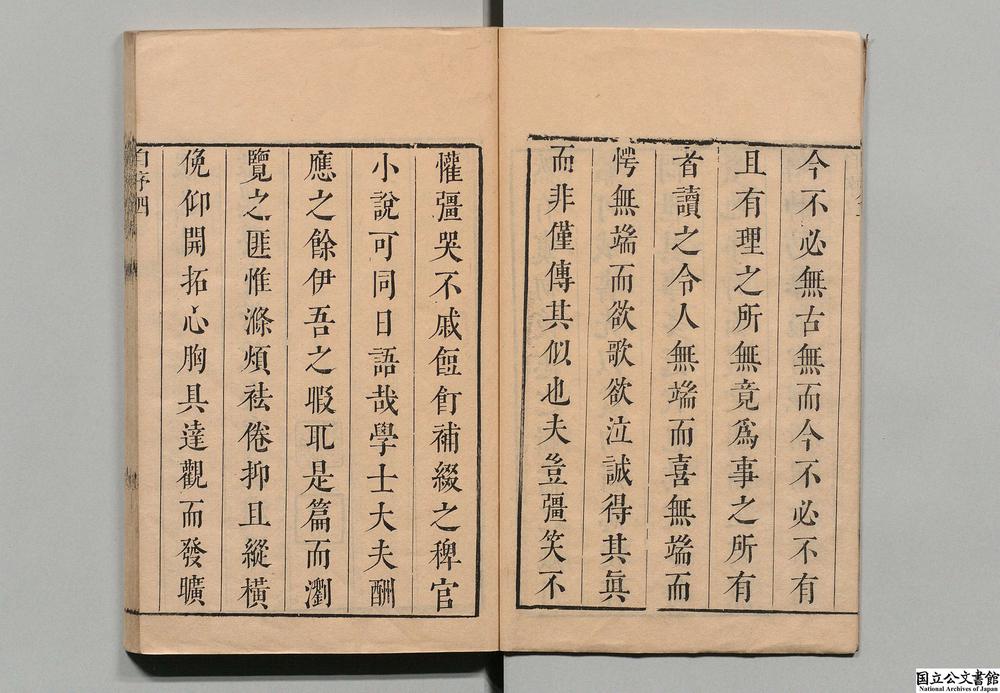 今不必無古無而今不必不有
且有理之所無竟爲事之所有
者讀之令人無端而喜無端而
愕無端而欲歌欲泣誠得其眞
而非僅傳其似也夫豈彊笑不
懽彊哭不戚飣餖補綴之稗官
小說可同日語哉學士大夫酬
應之餘伊吾之暇取是篇而瀏
覽之匪惟滌煩袪倦抑且縱橫
俛仰開拓心胸具達觀而發曠
自序四
国立公文書館
National Archives of Japan